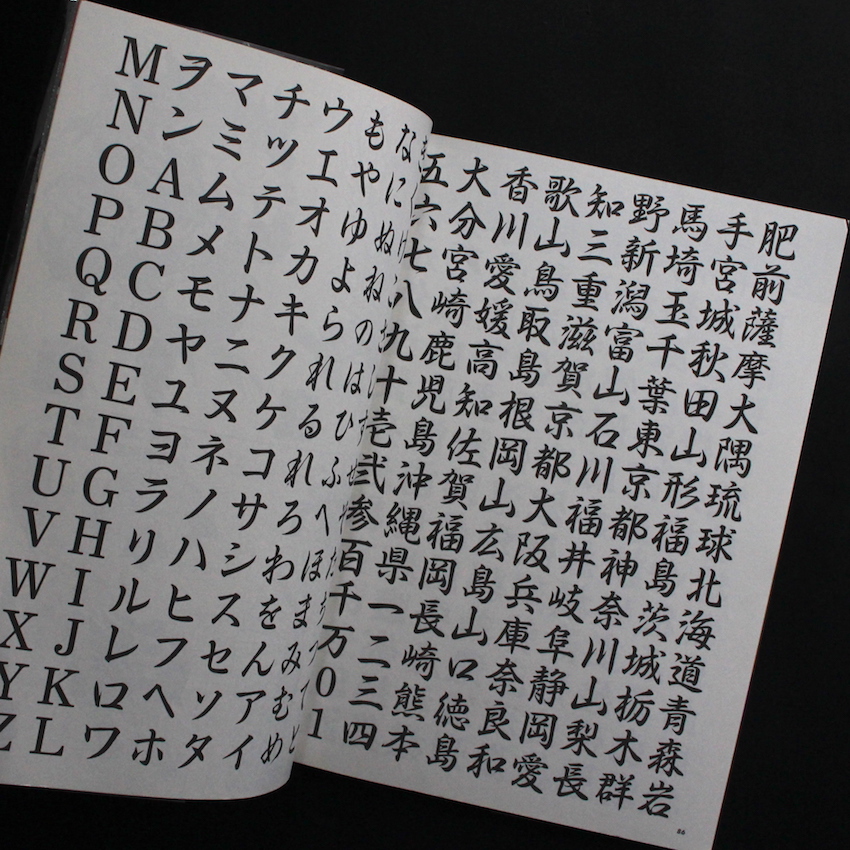 肥前薩摩大隅琉球北海道青森岩
手宮城秋田山形福島茨城栃木群
馬埼玉千葉東京都神奈川山梨長
野新潟富山石川福井岐阜静岡愛
知三重滋賀京都大阪兵庫奈良和
歌山鳥取島根岡山広島山口徳島
香川愛媛高知佐賀福岡長崎熊本
大分宮崎鹿児島沖縄県一二三四
五六七八九十壱弐参百千万01
なにぬねのはひふへほまみむめ
もやゆよられるれろわをんアイ
ウエオカキクケコサシスセソタ
チツテトナニヌネノハヒフヘホ
マミムメモヤユヨラリルレロワ
ヲンABCDEFGHIJKL
MNOPQRSTUVWXYZ
86